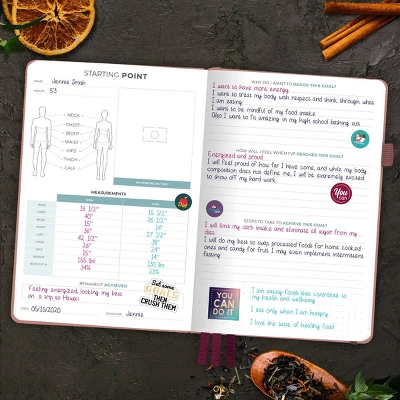 STARTING POINT
NAME Jennie Smith
HEIGHT 5'3
NECK
CHEST
BICEP
WAIST
HIPS
THIGH
CALF
MEASUREMENTS
NOW GOAL
NECK 16 1/2" 15 3/4"
CHEST 40" 36 1/2"
BICEP 15" 14"
WAIST 36" 27 1/2"
HIPS 42 1/2" 38"
THIGH 26" 24"
CALF 15" 14"
WEIGHT 155 lbs 135 lbs
34% 23%
REWARD IF ACHIEVED
Feeling energized, looking my best
on a trip to Hawaii
Set some
GOALS
THEN
CRUSH THEM
DATE 05/15/2020
SIGNATURE Jennie
WHY DO I WANT TO REACH THIS GOAL?
I want to have more energy.
I want to treat my body with respect and think through what
I am eating.
I want to be mindful of my food intake.
Also I want to fit amazing in my high school bathing suit.
HOW WILL I FEEL WHEN I'VE REACHED THIS GOAL?
Energized and proud!
I will feel proud of how far I have come, and while my body
composition does not define me, I will be extremely excited
to show off my hard work.
You
can
STEPS TO TAKE TO ACHIEVE THIS GOAL?
I will limit my carb intake and eliminate all sugar from my
diet.
I will do my best to swap processed foods for home cooked
ones and candy for fruit. I may even implement intermittent
fasting.
YOU
CAN
DO IT
I am eating foods that contribute to
my health and wellbeing
I eat only when I am hungry
I love the taste of healthy food